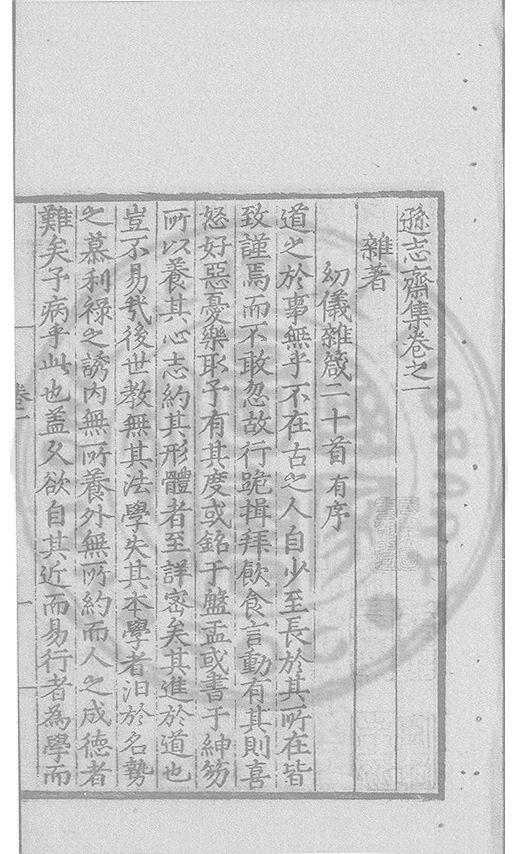 遜志齋集卷之一
雜著
幼儀雜箴二十首有序
道之於事無乎不在古之人自少至長於其所在皆
致謹焉而不敢忽故行跪揖拜飲食言動有其則喜
怒好惡憂樂取予有其度或銘于盤盂或書于紳笏
所以養其心志約其形體者至詳密矣其進於道也
豈不易哉後世教無其法學失其本學者汩於名勢
之慕利祿之誘内無所養外無所約而人之成德者
難矣予病乎此也盖久欲自其近而易行者為學而